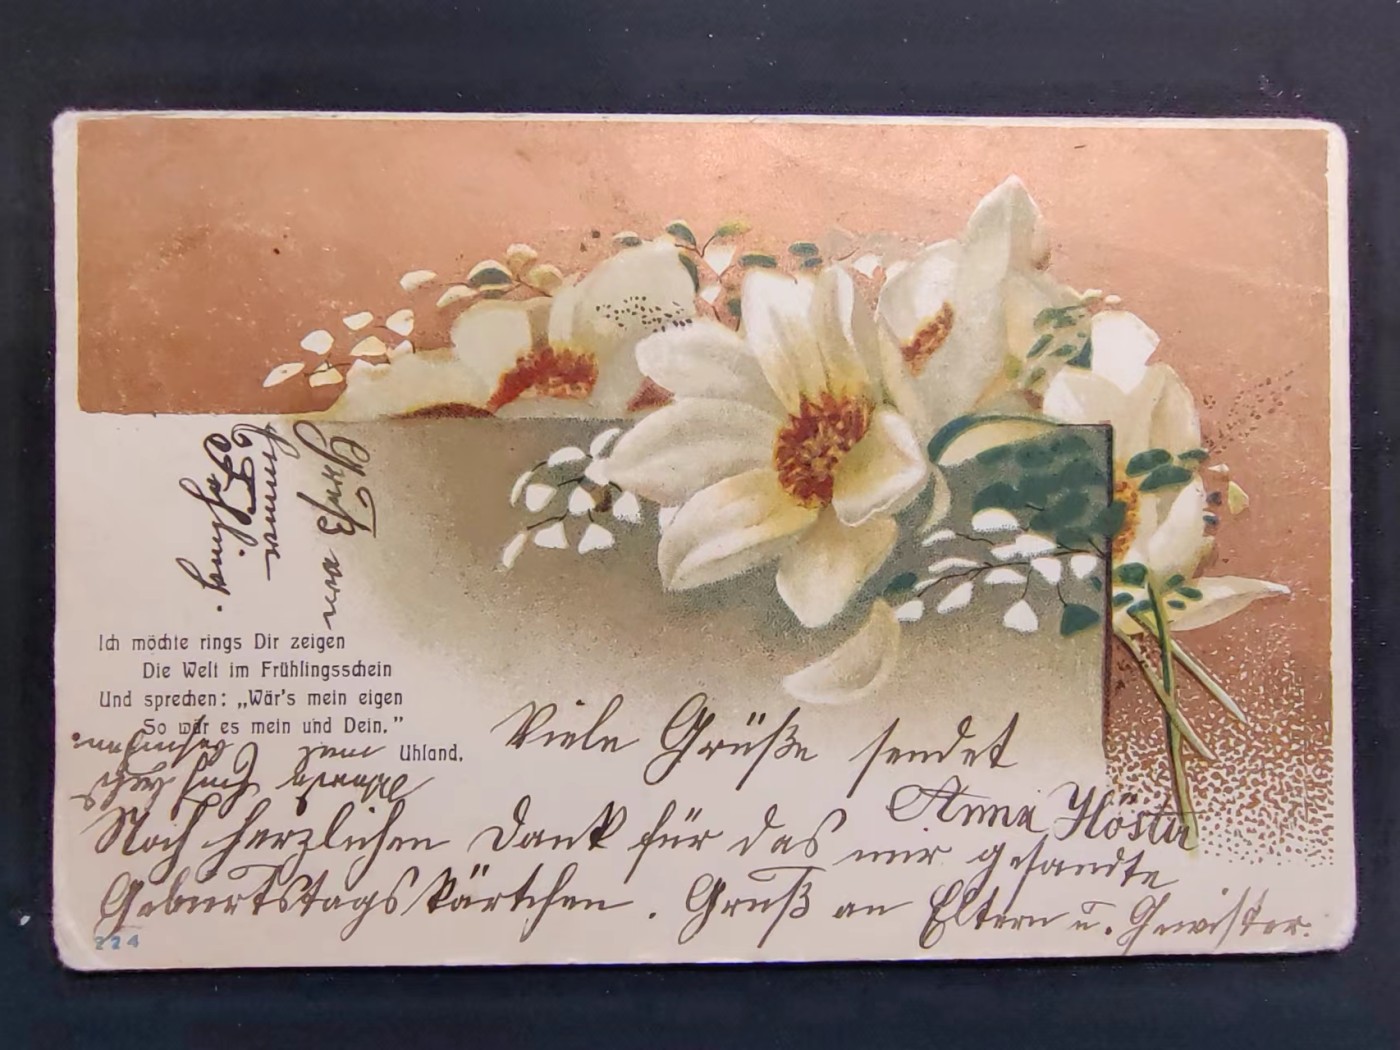 Ich möchte rings Dir zeigen
Die Welt im Frühlingsschein
Und sprechen: „Wär's mein eigen
So wär es mein und Dein."
Uhland.
Viele Grüße sendet
Anna Höster
Noch herzlichen Dank für das mir gesandte
Geburtstagskärtchen. Gruß an Eltern u. Gewister.
224